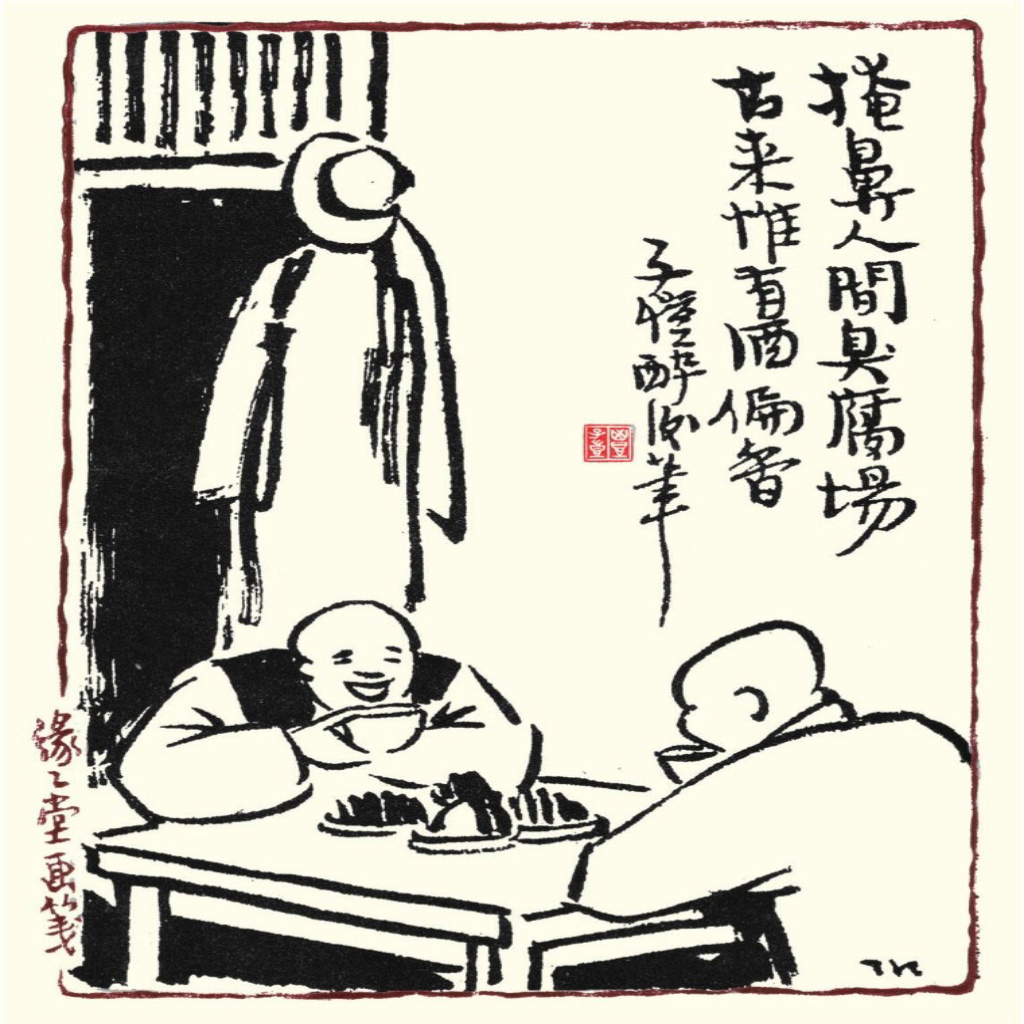 掩鼻人間臭腐場
古来惟有酒偏香
子愷醉後筆
緣緣堂画笺
TK